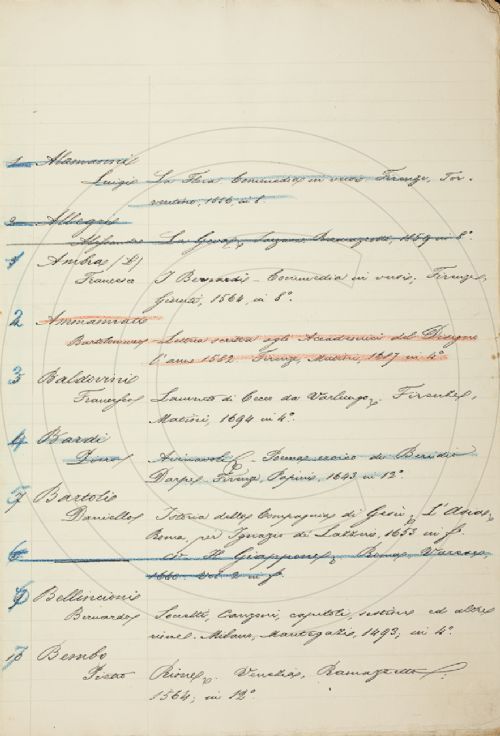 1 Alamanni
Luigi La Flora Commedia in versi Firenze, Tor-
rentino, in 8.°
2 Allegri
Alessandro La Geva, in 8°
Ambra (d')
Francesco I Bernardi - Commedia in versi, Firenze,
Giunti, 1564, in 8.°
2 Ammannati
Bartolomeo Lettera scritta agli Accademici del Disegno
l'anno 1582 Firenze, 1617 in 4.°
3 Baldovini
Francesco Lamento di Cecco da Varlungo, Firenze,
Matini, 1694 in 4.°
4 Bardi
Avinavoliottoneberlinghieri Poema eroico di
Firenze, 1643 in 12.°
Bartoli
Daniello Istoria della Compagnia di Gesù, L'Asia,
Roma, per Ignazio de Lazzeri, 1653 in f.
Il Giappone, Roma,
1660 Vol. 2 in f.
Bellincioni
Bernardo Sonetti, canzoni, capitoli, sestine ed altre
rime. Milano, Mantegazzi, 1493, in 4.°
Bembo
Pietro Rime, Venezia,
1564, in 12.°